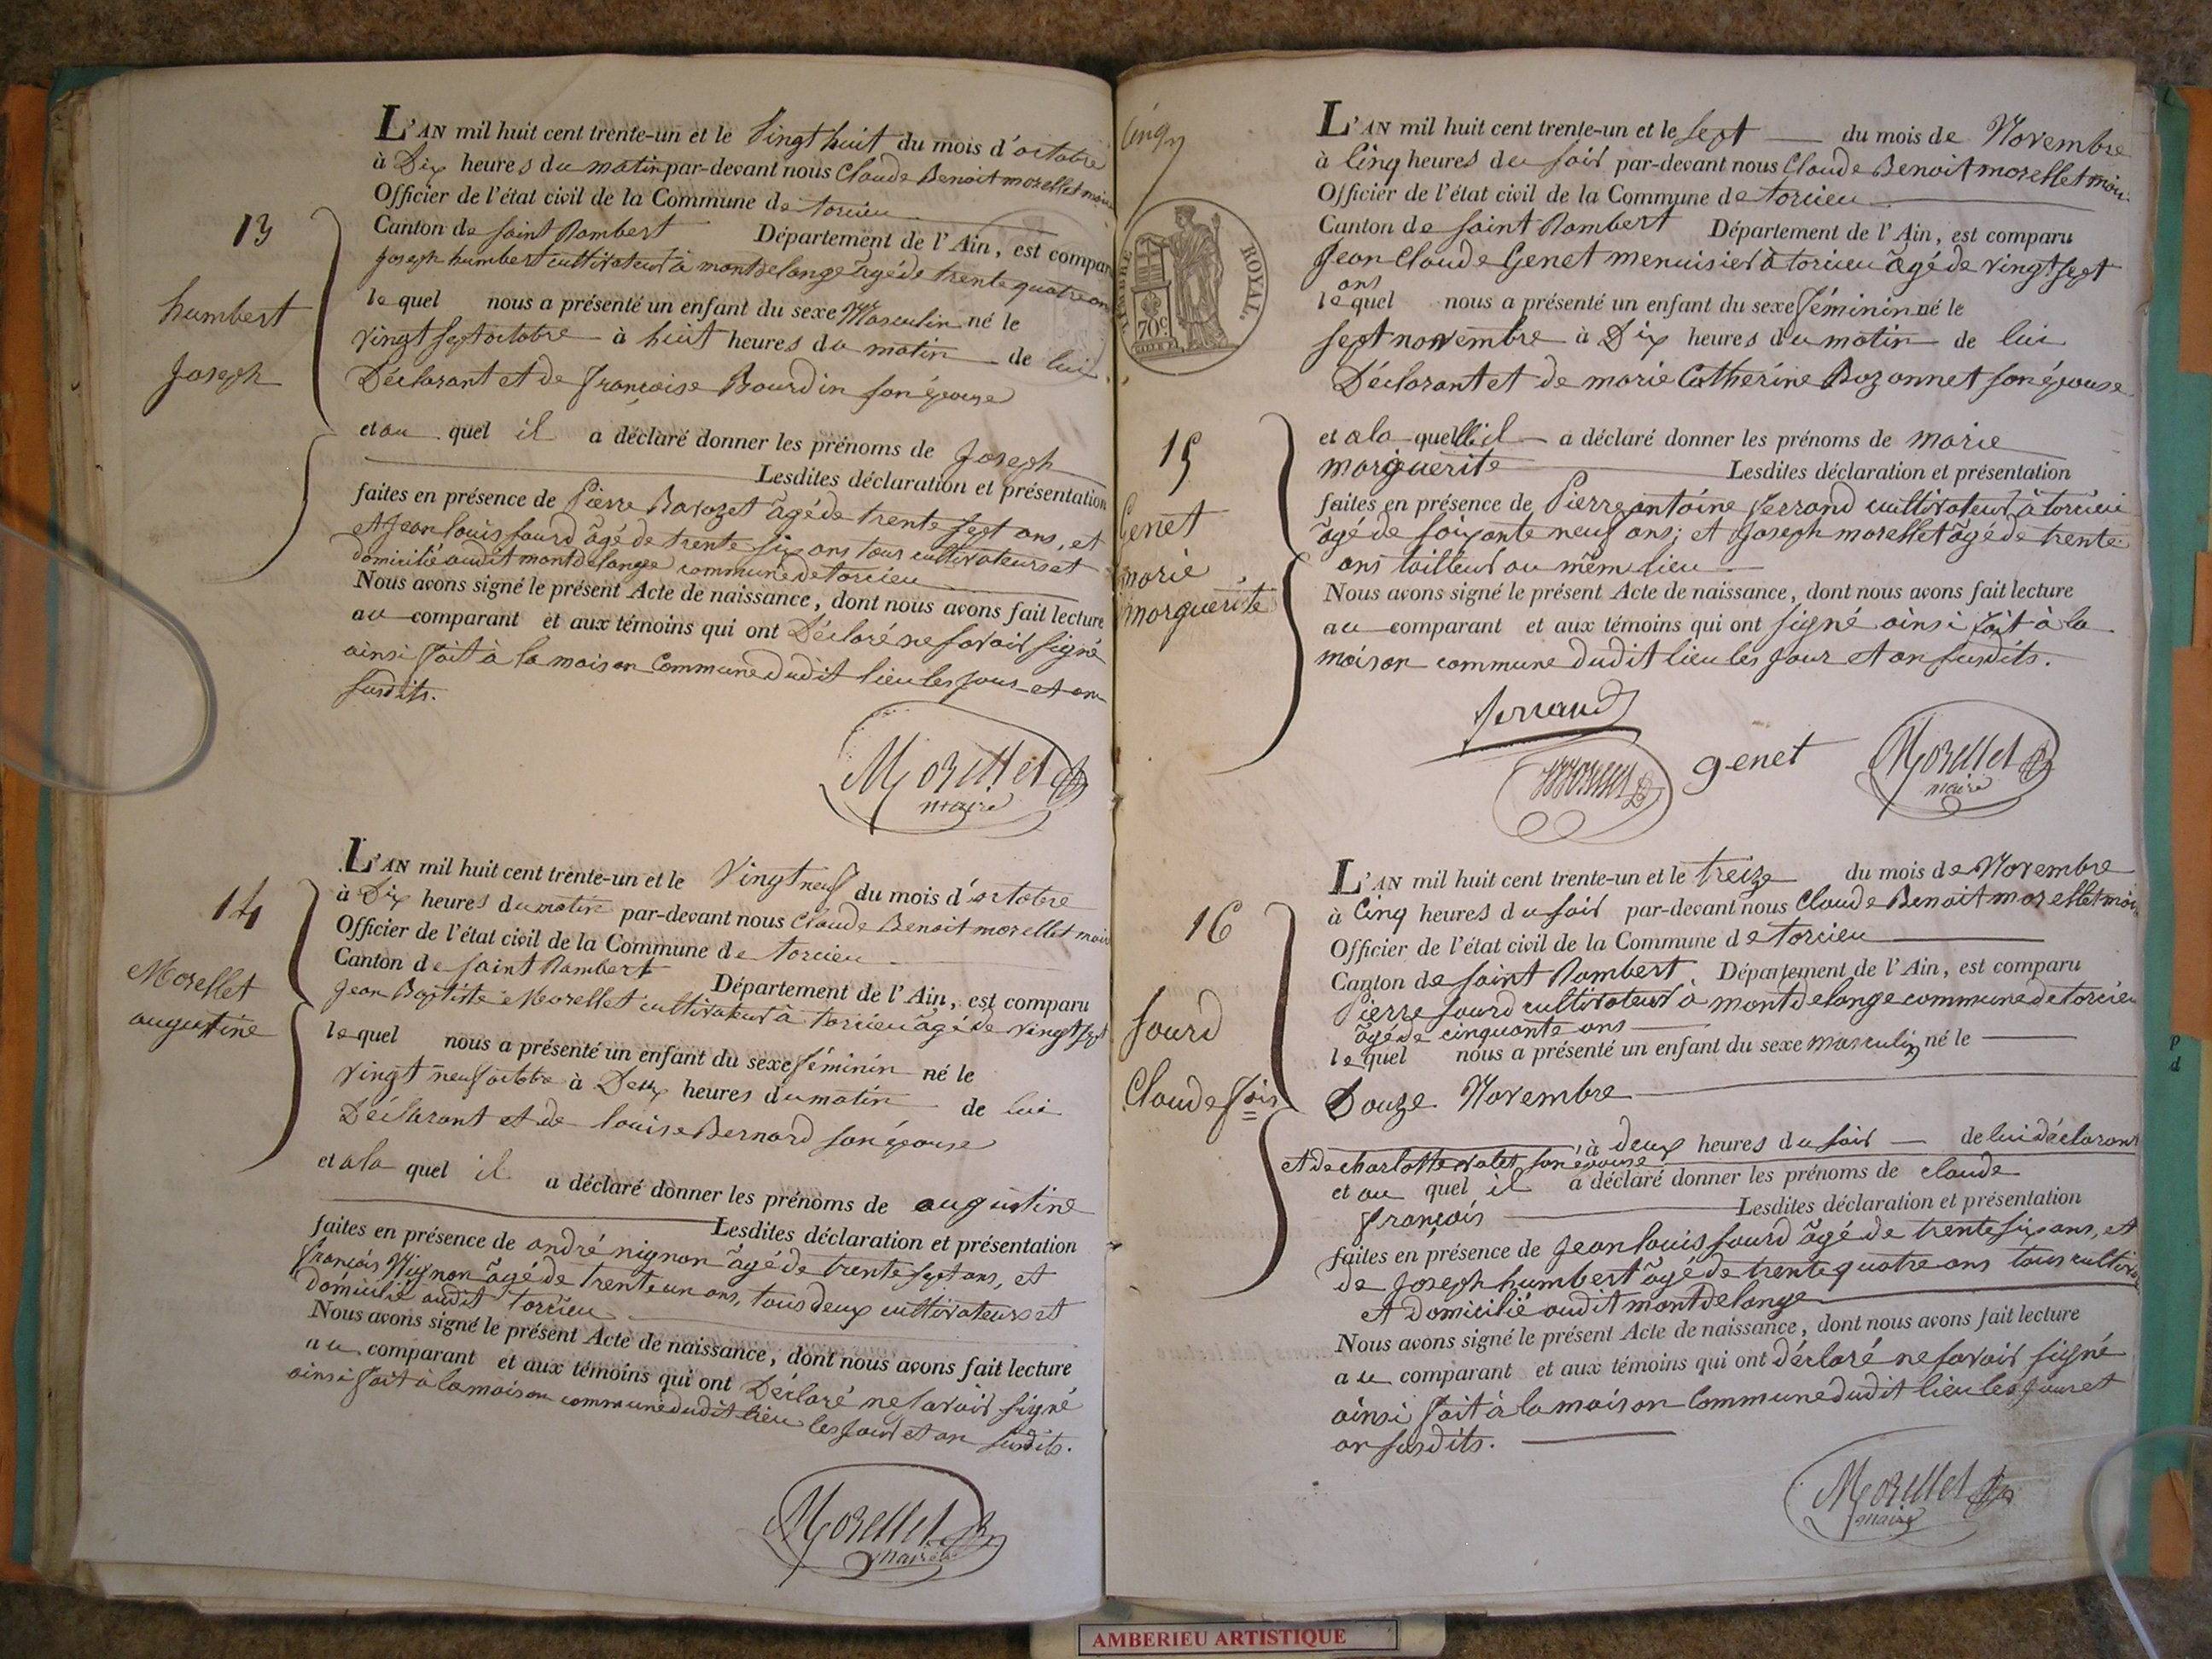 13
humbert
Joseph
L'AN mil huit cent trente-un et le Vingt huit du mois d'octobre
à Dix heures du matin par-devant nous Claude Benoit morellet maire
Officier de l'état civil de la Commune de torcieu
Canton de saint Rambert Département de l'Ain, est comparu
Joseph humbert cultivateur à montdelange âgé de trente quatre ans
le quel nous a présenté un enfant du sexe Masculin né le
vingt sept octobre à huit heures du matin de lui
Déclarant et de françoise Bourdin son épouse
et au quel il a déclaré donner les prénoms de Joseph
Lesdites déclaration et présentation
faites en présence de Pierre Bavozet âgé de trente sept ans, et
et Jean louis sourd âgé de trente six ans tous cultivateurs et
domicilié audit montdelange commune de torcieu
Nous avons signé le présent Acte de naissance, dont nous avons fait lecture
au comparant et aux témoins qui ont Déclaré ne savoir signé
ainsi fait à la maison Commune dudit lieu les jour et an
susdits.
Morellet
maire
14
Morellet
augustine
L'AN mil huit cent trente-un et le Vingt neuf du mois d'octobre
à Dix heures du matin par-devant nous Claude Benoit morellet maire
Officier de l'état civil de la Commune de torcieu
Canton de saint Rambert Département de l'Ain, est comparu
Jean Baptiste Morellet cultivateur à torcieu âgé de vingt sept
le quel nous a présenté un enfant du sexe féminin né le
vingt neuf octobre à Deux heures du matin de lui
Déclarant et de louise Bernard son épouse
et a la quel il a déclaré donner les prénoms de augustine
Lesdites déclaration et présentation
faites en présence de andré nignon âgé de trente sept ans, et
françois Nignon âgé de trente un ans, tous deux cultivateurs et
Domicilié audit torcieu
Nous avons signé le présent Acte de naissance, dont nous avons fait lecture
au comparant et aux témoins qui ont Déclaré ne savoir signé
ainsi fait à la maison commune dudit lieu les jour et an susdits.
Morellet
maire
Cinq
TIMBRE ROYAL.
70c
15
Genet
marie
marguerite
L'AN mil huit cent trente-un et le sept du mois de Novembre
à Cinq heures du soir par-devant nous Claude Benoit morellet maire
Officier de l'état civil de la Commune de torcieu
Canton de saint Rambert Département de l'Ain, est comparu
Jean Claude Genet menuisier à torcieu âgé de vingt sept
ans
le quel nous a présenté un enfant du sexe féminin né le
sept novembre à Dix heures du matin de lui
Déclarant et de marie Catherine Bozonnet son épouse
et a la quelle il a déclaré donner les prénoms de marie
marguerite Lesdites déclaration et présentation
faites en présence de Pierre antoine ferrand cultivateur à torcieu
âgé de soixante neuf ans; et Joseph morellet âgé de trente
ans tailleur au même lieu
Nous avons signé le présent Acte de naissance, dont nous avons fait lecture
au comparant et aux témoins qui ont signé ainsi fait à la
maison commune dudit lieu les jour et an susdits.
ferrand
genet
Morellet
maire
16
sourd
Claude fois
L'AN mil huit cent trente-un et le treize du mois de Novembre
à Cinq heures du soir par-devant nous Claude Benoit morellet maire
Officier de l'état civil de la Commune de torcieu
Canton de saint Rambert Département de l'Ain, est comparu
Pierre sourd cultivateur à montdelange commune de torcieu
âgé de cinquante ans
le quel nous a présenté un enfant du sexe masculin né le
Douze Novembre
à deux heures du soir de lui déclarant
et de charlotte valet son épouse
et au quel il a déclaré donner les prénoms de claude
françois Lesdites déclaration et présentation
faites en présence de Jean louis sourd âgé de trente six ans, et
de Joseph humbert âgé de trente quatre ans tous
et domicilié audit montdelange
Nous avons signé le présent Acte de naissance, dont nous avons fait lecture
au comparant et aux témoins qui ont déclaré ne savoir signé
ainsi fait à la maison Commune dudit lieu les jour et
an susdits.
Morellet
maire
p
d
AMBERIEU ARTISTIQUE